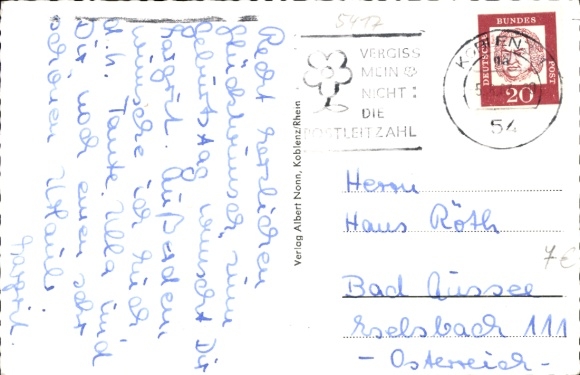 5417
VERGISS
MEIN
NICHT:
DIE
POSTLEITZAHL
KOBLENZ
54
DEUTSCHE BUNDESPOST
20
Recht herzlichen
Glückwunsch zum
Geburtstag wünscht Dir
Margrit. Außerdem
wünsche ich Euch
d.h. Tante Ulla und
Dir noch einen sehr
schönen Urlaub.
Margrit.
Verlag Albert Nonn, Koblenz/Rhein
Herrn
Hans Röth
7€
Bad Aussee
Eselsbach 111
- Österreich -